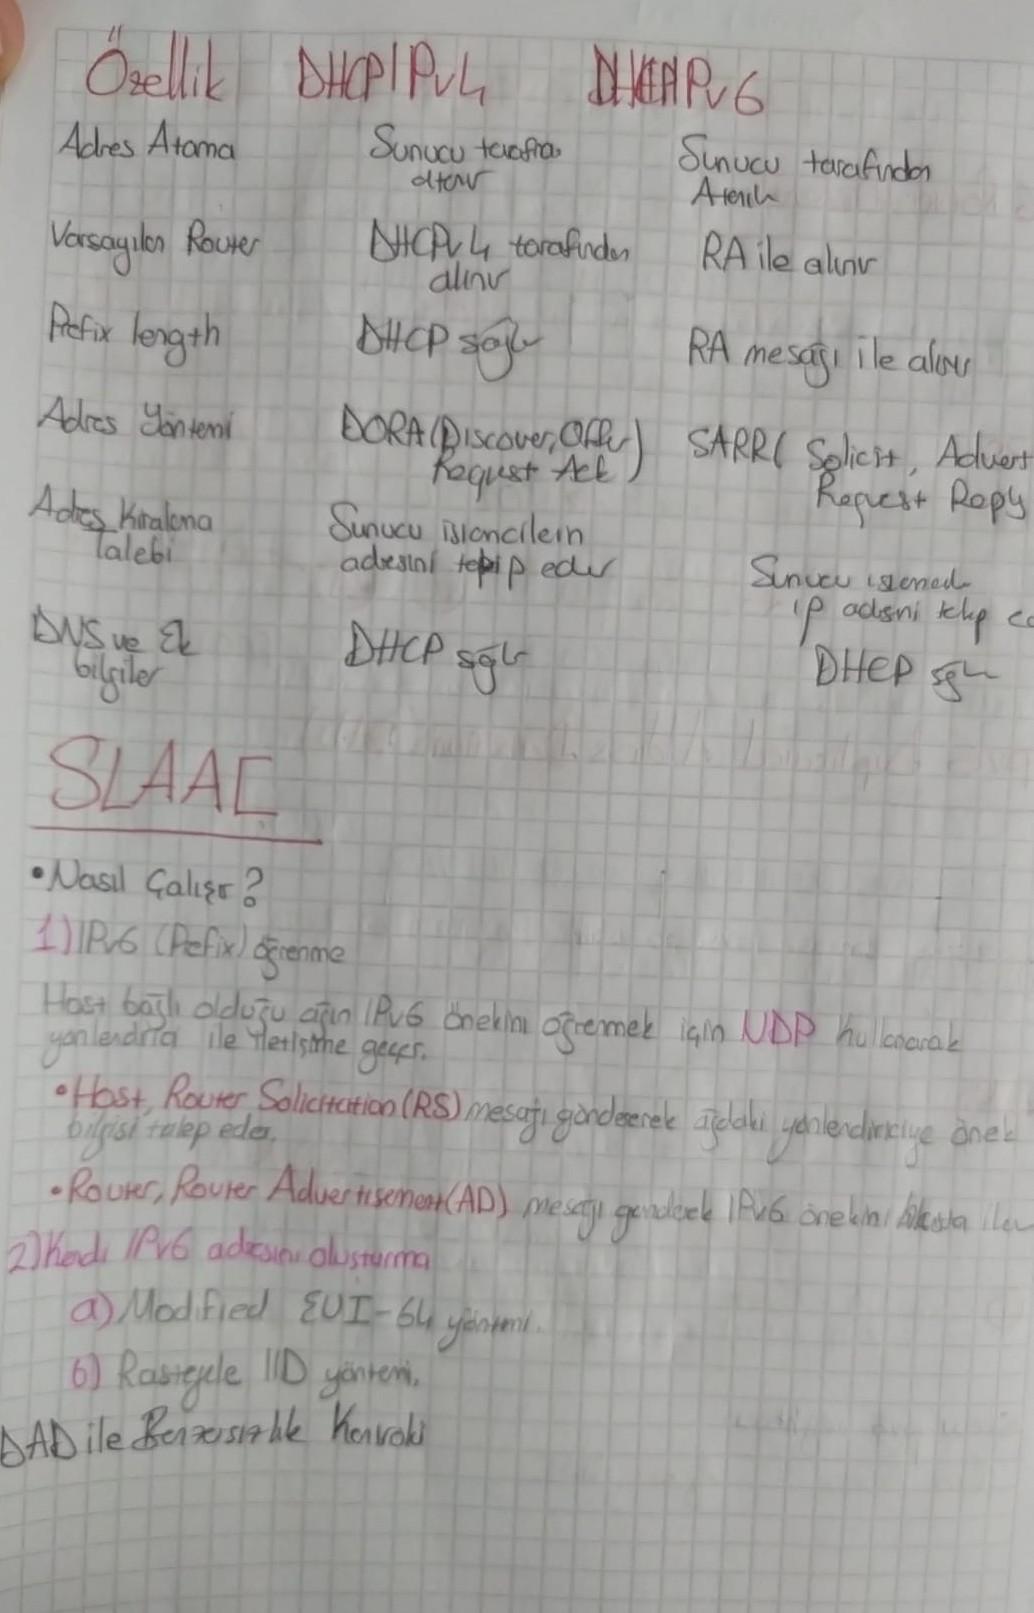 Özellik DHCPIPv4 DHCPIPv6
Adres Atama Sunucu tarafından Sunucu tarafından
atanır Atanır
Varsayılan Router DHCPv4 tarafından RA ile alınır
alınır
Prefix length DHCP sağlar RA mesajı ile alınır
Adres Yöntemi DORA(Discover, Offer SARR( Solicit, Advert
Request Ack) Request Reply
Adres Kiralama Sunucu istemcilerin
Talebi adresini takip eder Sunucu
ip adresini takip
DNS ve Ek DHCP sağlar DHCP sağlar
bilgiler
SLAAC
• Nasıl Çalışır?
1) IPv6 (Prefix) öğrenme
Host bağlı olduğu ağın IPv6 önekini öğrenmek için NDP kullanarak
yönlendirici ile iletişime geçer.
• Host, Router Solicitation (RS) mesajı göndererek ağdaki yönlendiriciye önek
bilgisi talep eder.
• Router, Router Advertisement(AD) mesajı göndererek IPv6 önekini
2) Kendi IPv6 adresini oluşturma
a) Modified EUI-64 yöntemi.
b) Rastgele IID yöntemi.
DAD ile Benzersizlik Kontrolü